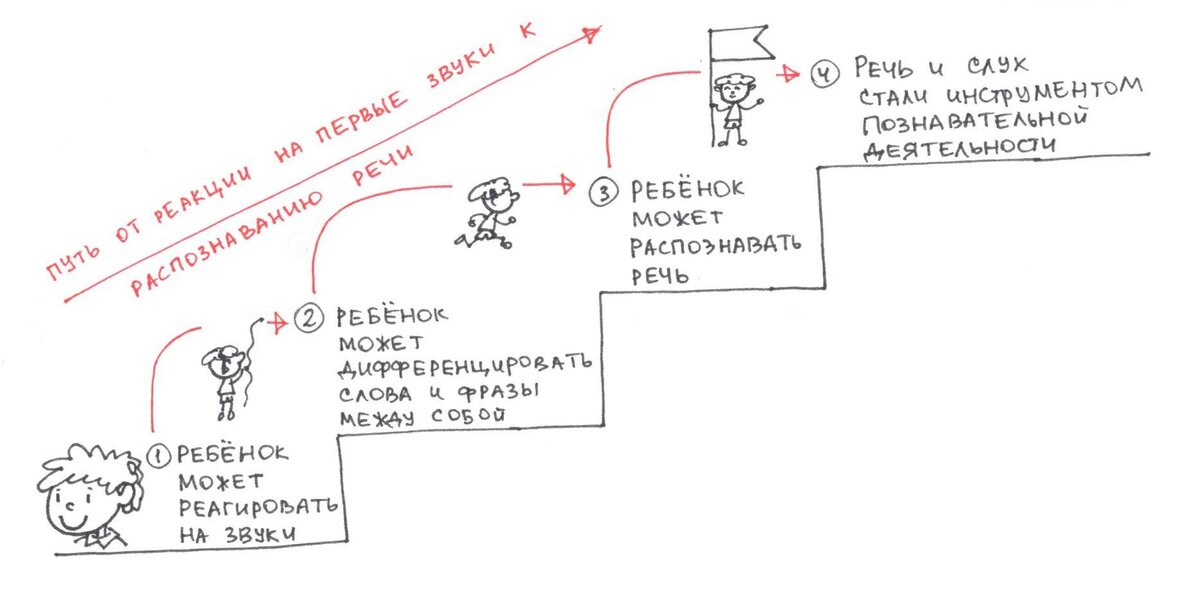 ПУТЬ ОТ РЕАКЦИИ НА ПЕРВЫЕ ЗВУКИ К
РАСПОЗНАВАНИЮ РЕЧИ
1 РЕБЁНОК
МОЖЕТ
РЕАГИРОВАТЬ
НА ЗВУКИ
2 РЕБЁНОК
МОЖЕТ
ДИФФЕРЕНЦИРОВАТЬ
СЛОВА И ФРАЗЫ
МЕЖДУ СОБОЙ
3 РЕБЁНОК
МОЖЕТ
РАСПОЗНАВАТЬ
РЕЧЬ
4 РЕЧЬ И СЛУХ
СТАЛИ ИНСТРУМЕНТОМ
ПОЗНАВАТЕЛЬНОЙ
ДЕЯТЕЛЬНОСТИ